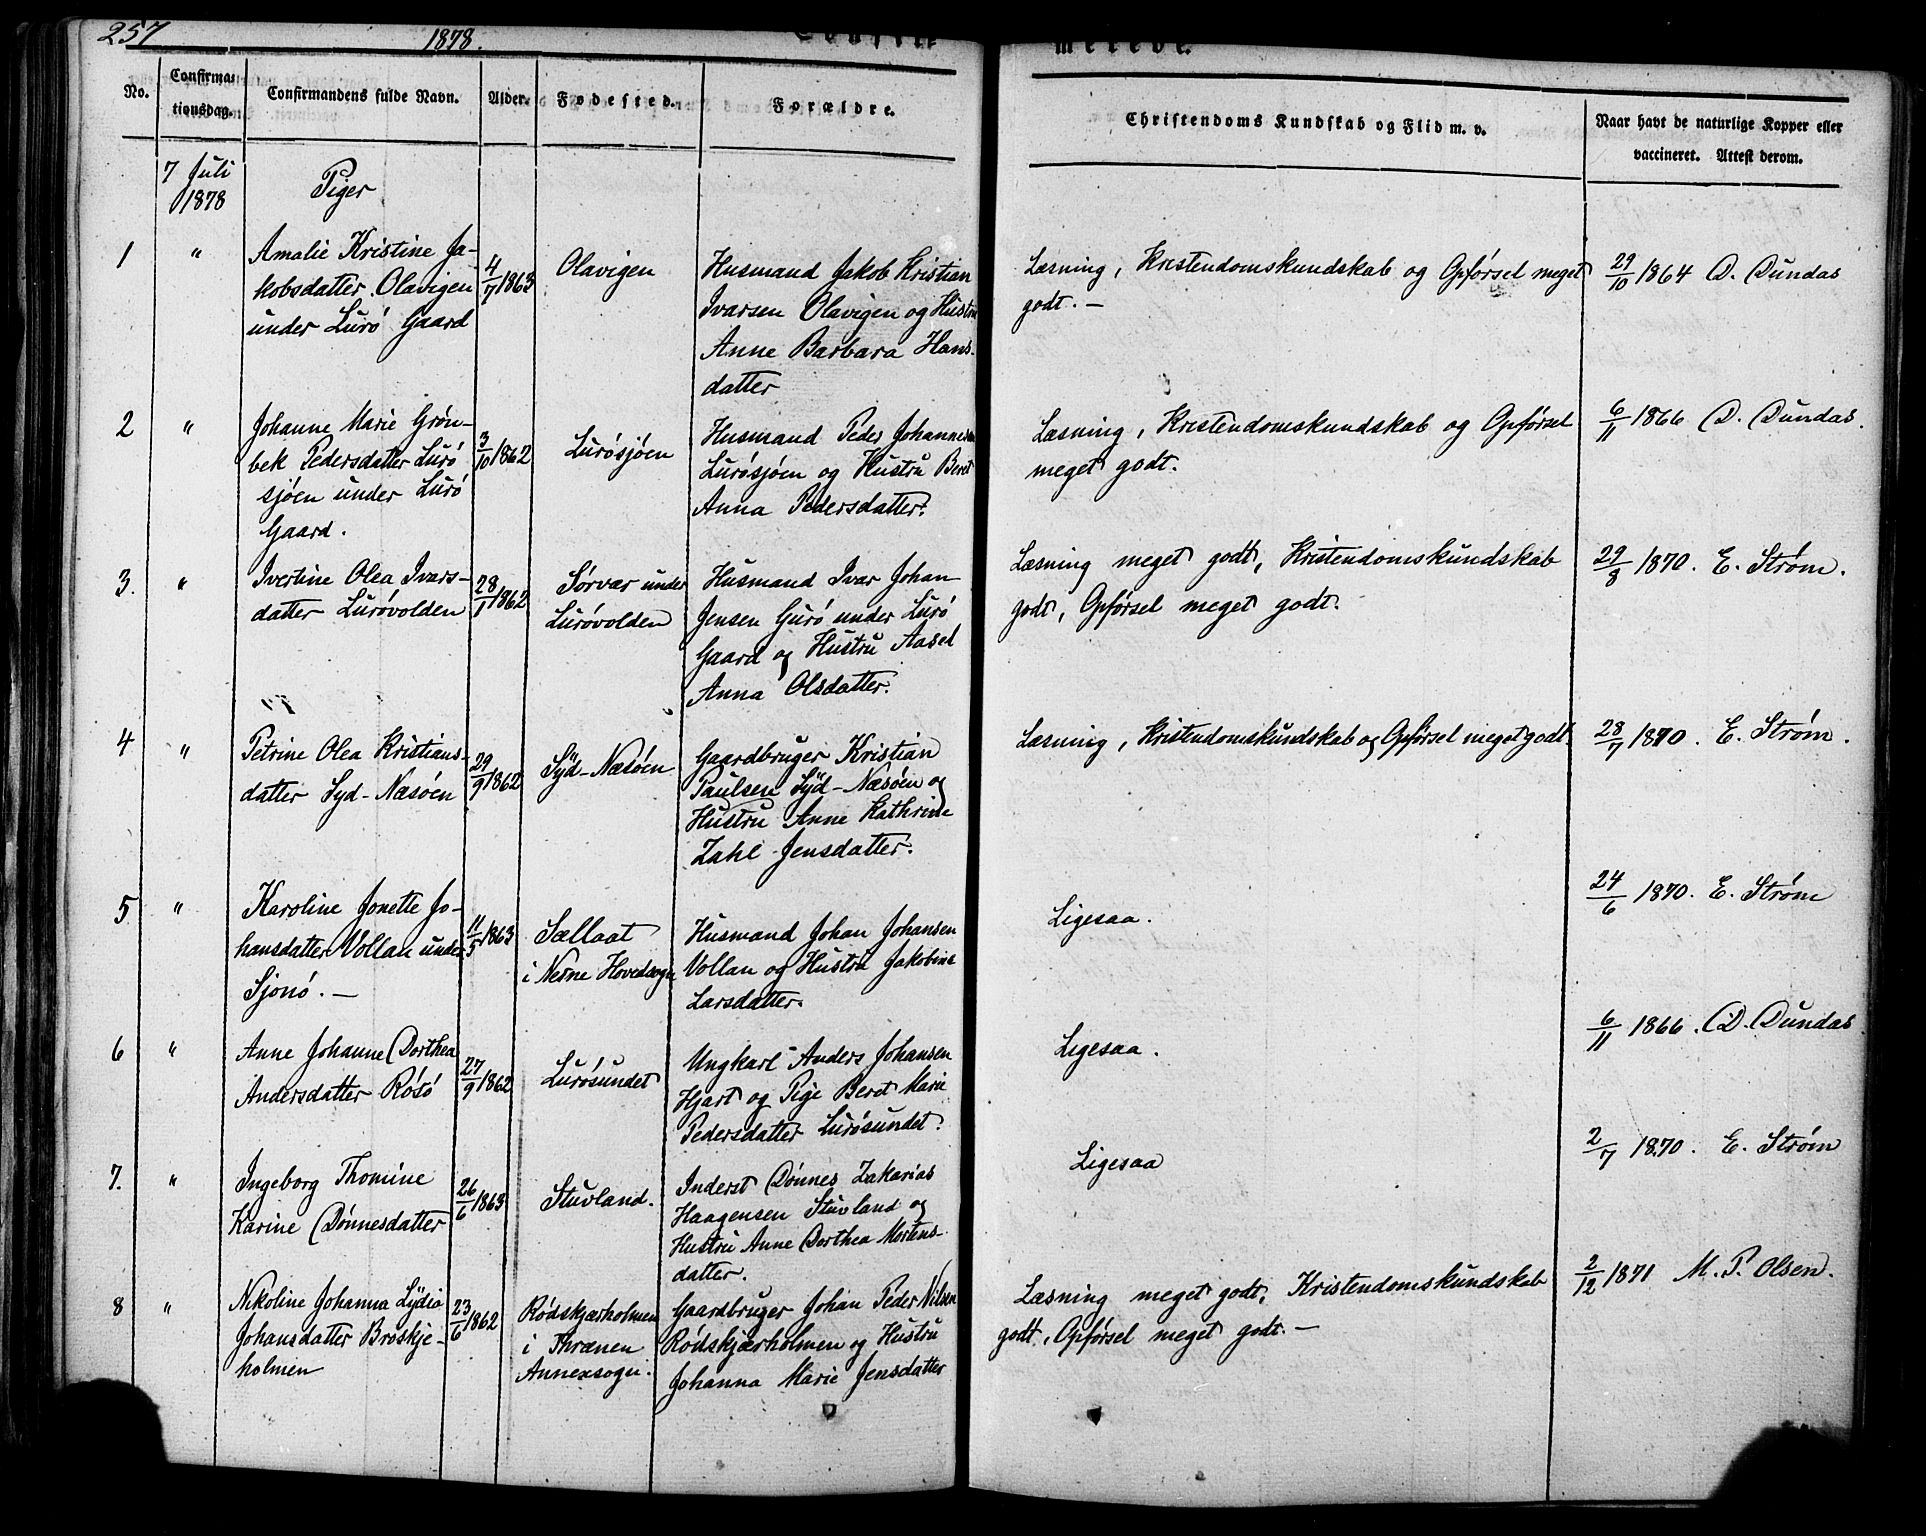 257
1878.
No.
Confirma-
tionsdag.
Confirmandens fulde Navn.
Alder.
Fødested.
Forældre.
Christendoms Kundskab og Flid m. v.
Naar havt de naturlige Kopper eller
vaccineret. Attest derom.
7 Juli
1878
Piger
1 " Amalie Kristine Ja-
kobsdatter Olavigen
under Lurø Gaard
4/7 1863
Olavigen
Husmand Jakob Kristian
Ivarsen Olavigen og Hustru
Anne Barbara Hans-
datter
Læsning, Kristendomskundskab og Opførsel meget
godt. —
29/10 1864 D. Dundas
2 " Johanne Marie Grøn-
bek Pedersdatter Lurø
sjøen under Lurø
Gaard.
3/10 1862
Lurøsjøen
Husmand Peder Johannesen
Lurøsjøen og Hustru Beret
Anna Pedersdatter.
Læsning, Kristendomskundskab og Opførsel
meget godt.
6/11 1866 D. Dundas.
3. " Ivertine Olea Ivars-
datter Lurøvolden
28/1 1862
Sørvær under
Lurøvolden
Husmand Ivar Johan
Jensen Gurø under Lurø
Gaard og Hustru Aasel
Anna Olsdatter.
Læsning meget godt, Kristendomskundskab
godt, Opførsel meget godt.
29/8 1870. E. Strøm.
4 " Petrine Olea Kristians-
datter Syd-Næsøen
29/9 1862
Syd-Næsøen
Gaardbruger Kristian
Paulsen Syd-Næsøen og
Hustru Anne Kathrine
Zahl Jensdatter.
Læsning, Kristendomskundskab og Opførsel meget godt.
28/7 1870. E. Strøm.
5 " Karoline Jonette Jo-
hansdatter Vollan under
Sjonø. —
11/5 1863
Sællaat
i Nesne Hovedsogn
Husmand Johan Johansen
Vollan og Hustru Jakobine
Larsdatter.
Ligesaa.
24/6 1870. E. Strøm
6 " Anne Johanne Dorthea
Andersdatter Røsø
27/9 1862
Lurøsundet
Ungkarl Anders Johansen
Hjart og Pige Beret Marie
Pedersdatter Lurøsundet.
Ligesaa.
6/11 1866. D. Dundas
7. " Ingeborg Thomine
Karine Dønnesdatter
26/6 1863
Stuvland.
Inderst Dønnes Zakarias
Haagensen Stuvland og
Hustru Anne Dorthea Mortens-
datter.
Ligesaa
2/7 1870. E. Strøm
8 " Nikoline Johanna Lydia
Johansdatter Broskje-
holmen
23/6 1862
Rødskjærholmen
i Thrænen
Annexsogn.
Gaardbruger Johan Peder Nilsen
Rødskjærholmen og Hustru
Johanna Marie Jensdatter
Læsning meget godt, Kristendomskundskab
godt, Opførsel meget godt. —
2/12 1871 M. P. Olsen.